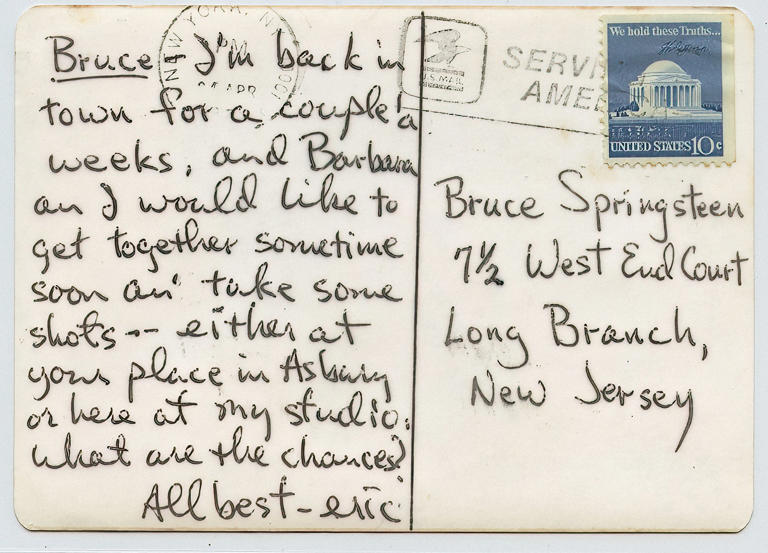 Bruce - I'm back in
town for a couple'a
weeks, and Barbara
an I would like to
get together sometime
soon an' take some
shots -- either at
your place in Asbury
or here at my studio.
what are the chances?
All best - eric
NEW YORK, N.Y.
PM
APR
U.S. MAIL
SERVI
AME
We hold these Truths...
UNITED STATES 10c
Bruce Springsteen
7½ West End Court
Long Branch,
New Jersey